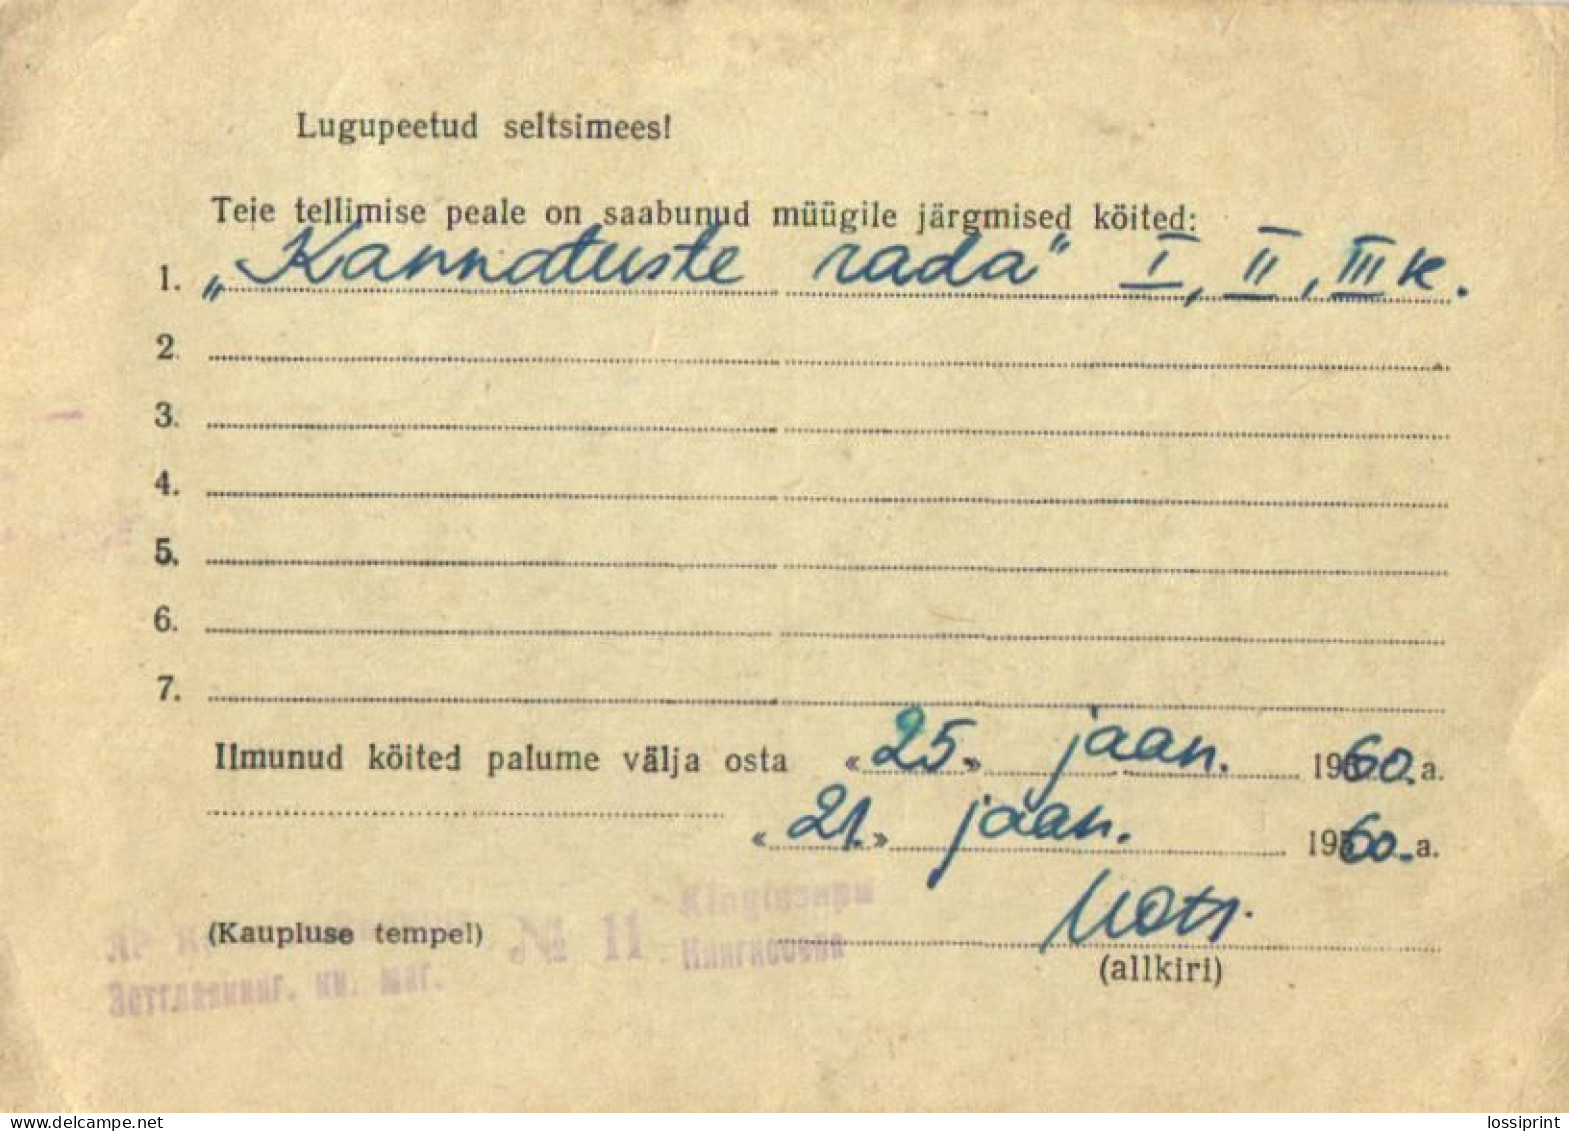 Lugupeetud seltsimees!
Teie tellimise peale on saabunud müügile järgmised köited:
1. „Kannatuste rada" I, II, III k.
2.
3.
4.
5.
6.
7.
Ilmunud köited palume välja osta «25» jaan. 1960. a.
«21.» jaan. 1960. a.
(Kaupluse tempel) № 11
Эстглавкниг. кн. маг.
(allkiri)
delcampe.net
lossiprint